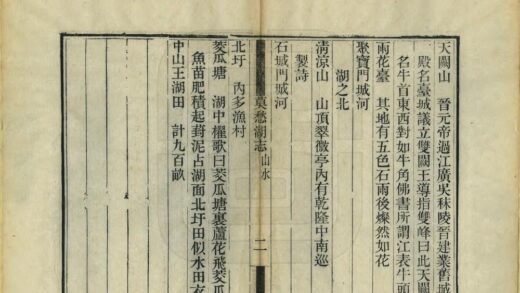 天闕山　晉元帝過江廣吳秣陵晉建業舊城
殿名臺城議立雙闕王導指雙峰曰此天闕
名牛首東西對如牛角佛書所謂江表牛頭
雨花臺　其地有五色石雨後燦然如花
聚寶門城河
湖之北
清涼山　山頂翠微亭內有乾隆中南巡
製詩
石城門城河
莫愁湖志　山水　二
北圩　內多漁村
菱瓜塘　湖中櫂歌曰菱瓜塘裏蘆花飛菱瓜
魚苗肥積起葑泥占湖面北圩田似水田衣
中山王湖田　計九百畝